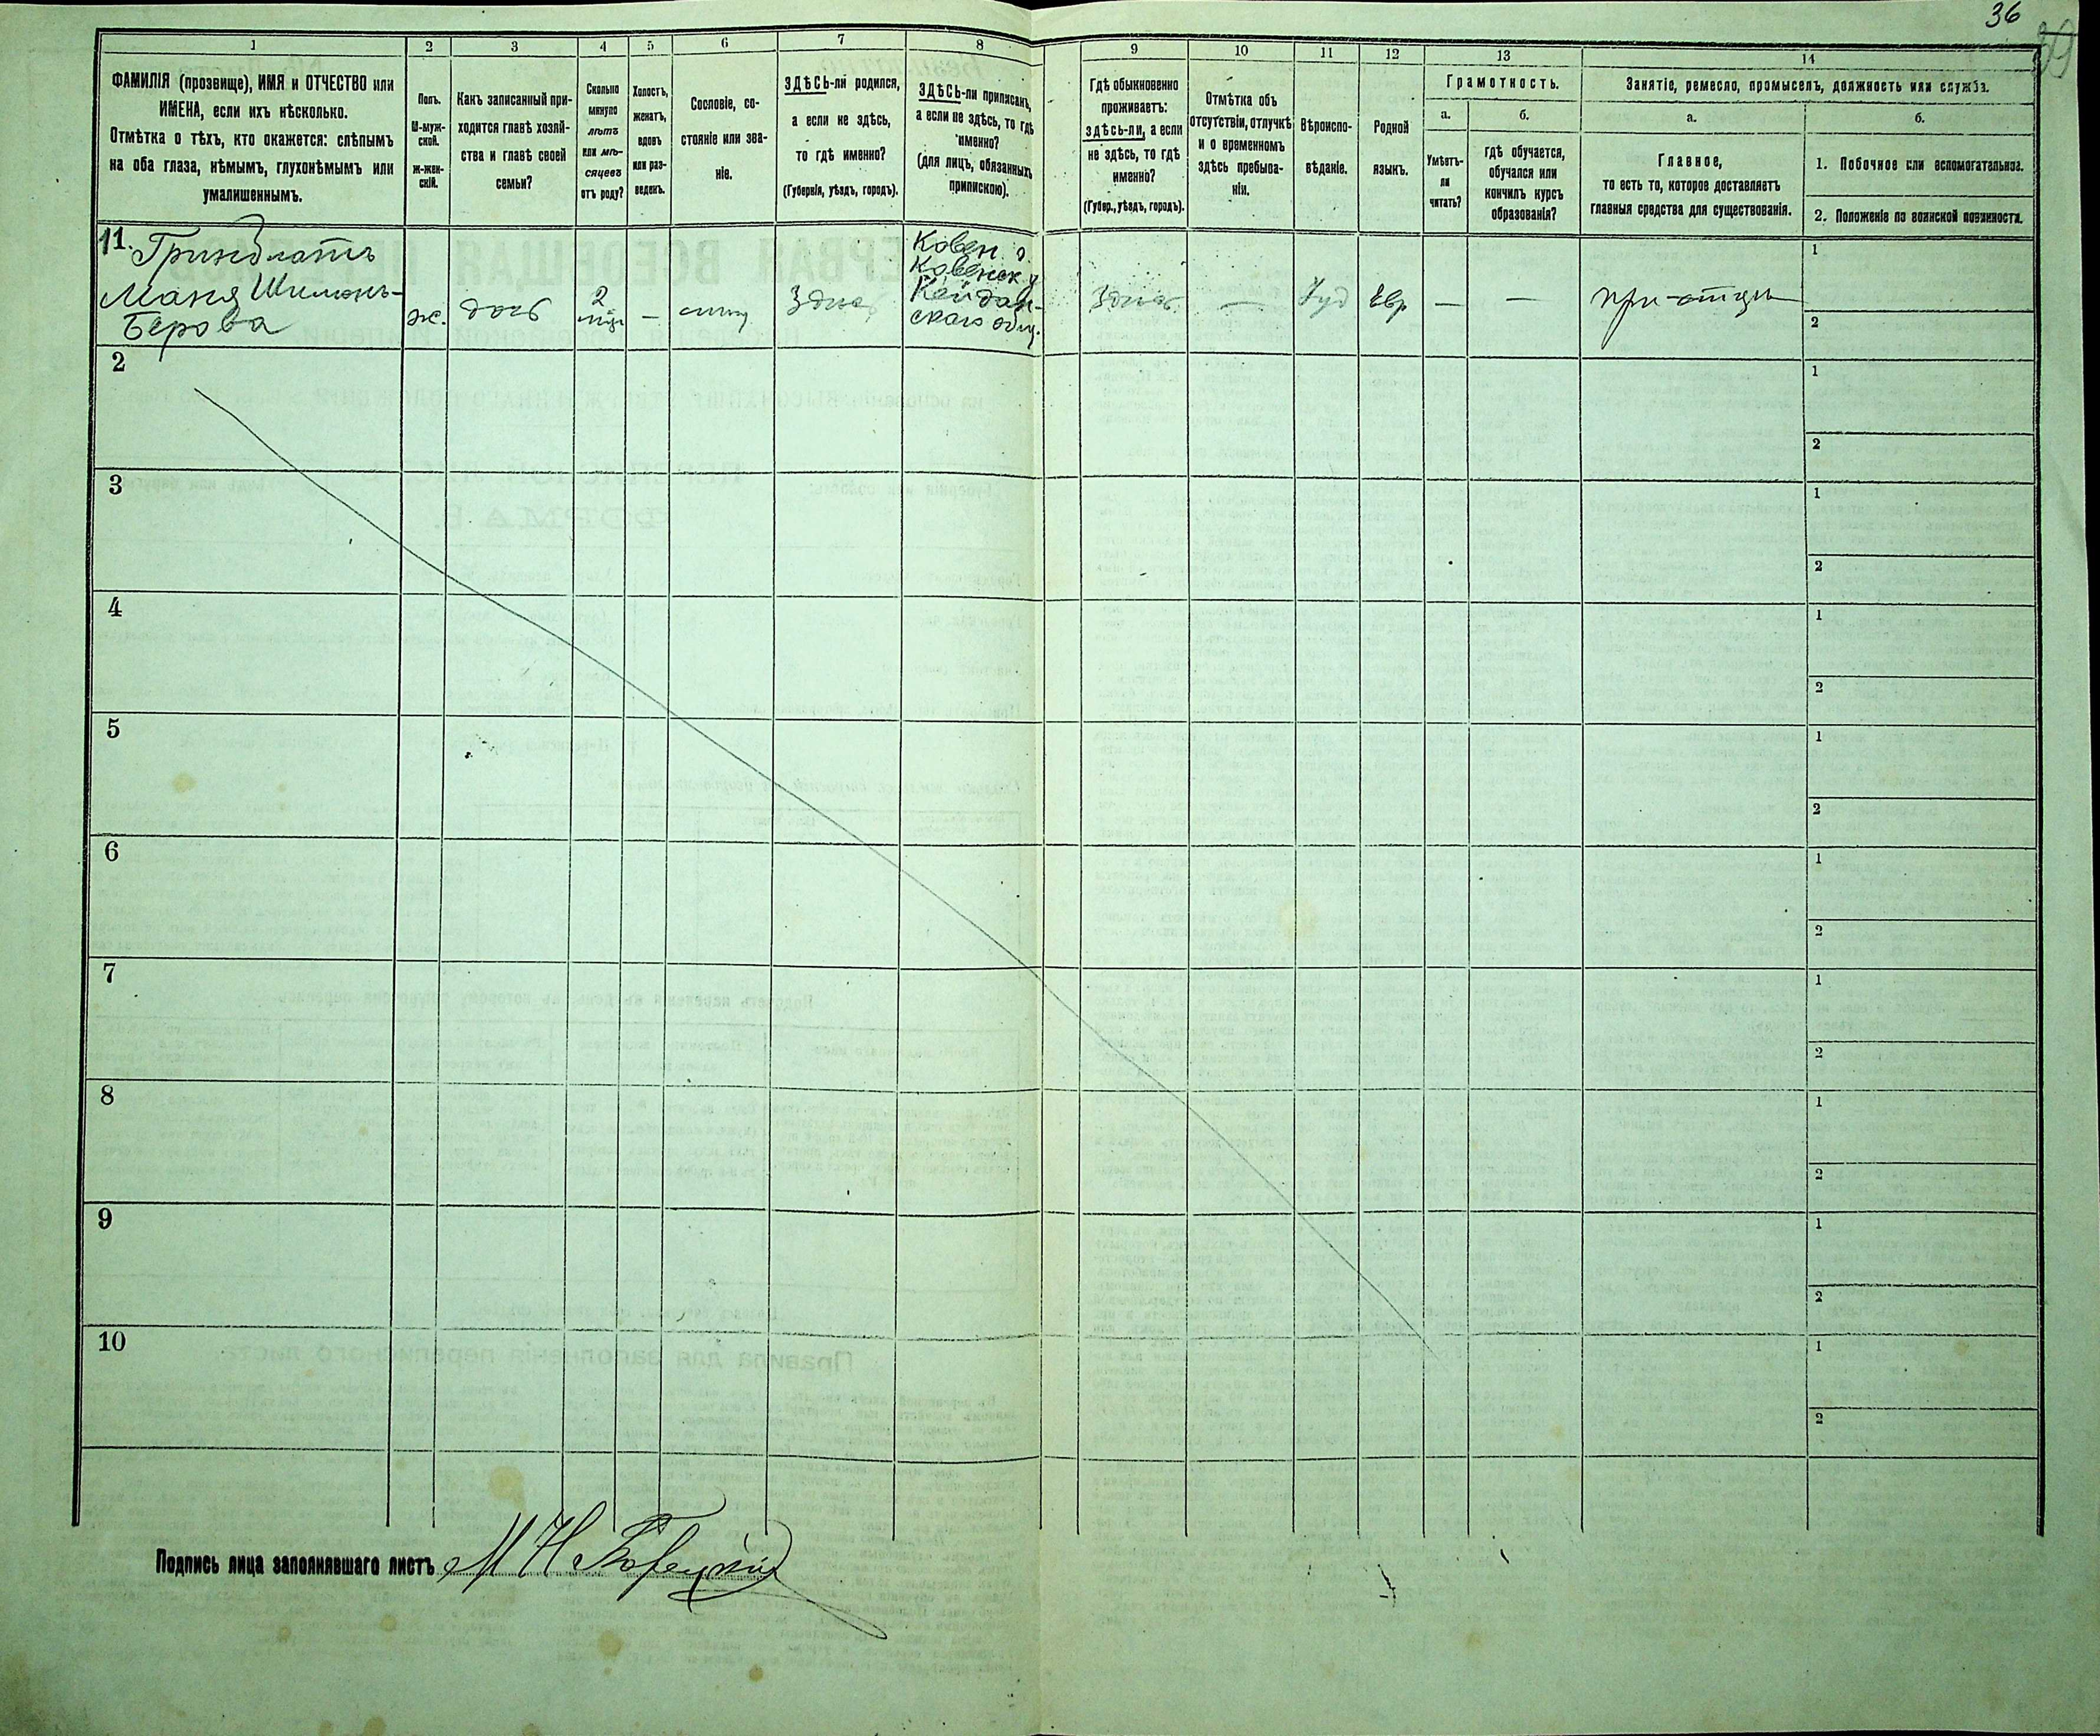 36
39
1
2
3
4
5
6
7
8
9
10
11
12
13
14
ФАМИЛІЯ (прозвище), ИМЯ и ОТЧЕСТВО или
ИМЕНА, если ихъ нѣсколько.
Отмѣтка о тѣхъ, кто окажется: слѣпымъ
на оба глаза, нѣмымъ, глухонѣмымъ или
умалишеннымъ.
Полъ.
М-муж-
ской.
ж-жен-
скій.
Какъ записанный при-
ходится главѣ хозяй-
ства и главѣ своей
семьи?
Сколько
минуло
лѣтъ
или мѣ-
сяцевъ
отъ роду?
Холостъ,
женатъ,
вдовъ
или раз-
веденъ.
Сословіе, со-
стояніе или зва-
ніе.
ЗДѢСЬ-ли родился,
а если не здѣсь,
то гдѣ именно?
(Губернія, уѣздъ, городъ).
ЗДѢСЬ-ли приписанъ,
а если не здѣсь, то гдѣ
именно?
(для лицъ, обязанныхъ
припискою).
Гдѣ обыкновенно
проживаетъ:
здѣсь-ли, а если
не здѣсь, то гдѣ
именно?
(Губер., уѣздъ, городъ).
Отмѣтка объ
отсутствіи, отлучкѣ
и о временномъ
здѣсь пребыва-
ніи.
Вѣроиспо-
вѣданіе.
Родной
языкъ.
Грамотность.
а.
Умѣетъ-
ли
читать?
б.
гдѣ обучается,
обучался или
кончилъ курсъ
образованія?
Занятіе, ремесло, промыселъ, должность или служба.
а.
Главное,
то есть то, которое доставляетъ
главныя средства для существованія.
б.
1. Побочное или вспомогательное.
2. Положеніе по воинской повинности.
11.
Гринблатъ
Маня Шимонъ-
Берова
ж.
дочь
2
мѣс
—
мѣщ
Здѣсь
Ковен. г.
Ковенск у
Кейдан-
скаго общ.
Здѣсь
—
Іуд
Евр
—
—
при-отцѣ
1
2
2
1
2
3
1
2
4
1
2
5
1
2
6
1
2
7
1
2
8
1
2
9
1
2
10
1
2
Подпись лица заполнявшаго листъ